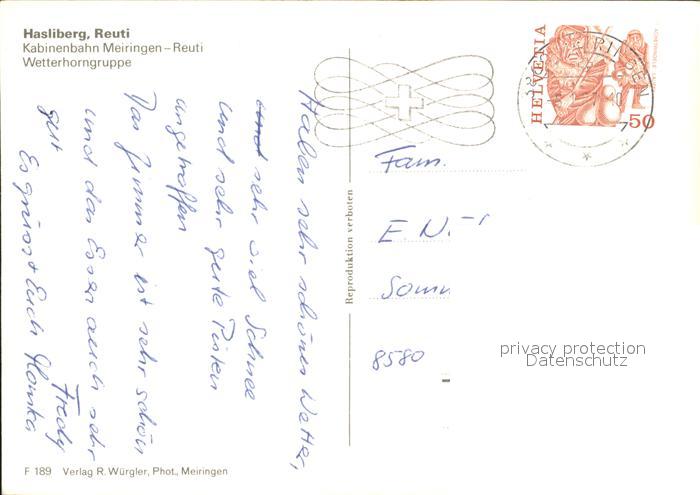 Hasliberg, Reuti
Kabinenbahn Meiringen – Reuti
Wetterhorngruppe
Haben sehr schönes Wetter,
sehr viel Schnee
und sehr gute Pisten
angetroffen
Das Zimmer ist sehr schön
und das Essen auch sehr
gut
Es grüsst Euch
Fredy
Reproduktion verboten
HELVETIA
50
Fam.
E. N
Somm
8580
privacy protection
Datenschutz
F 189 Verlag R. Würgler, Phot., Meiringen